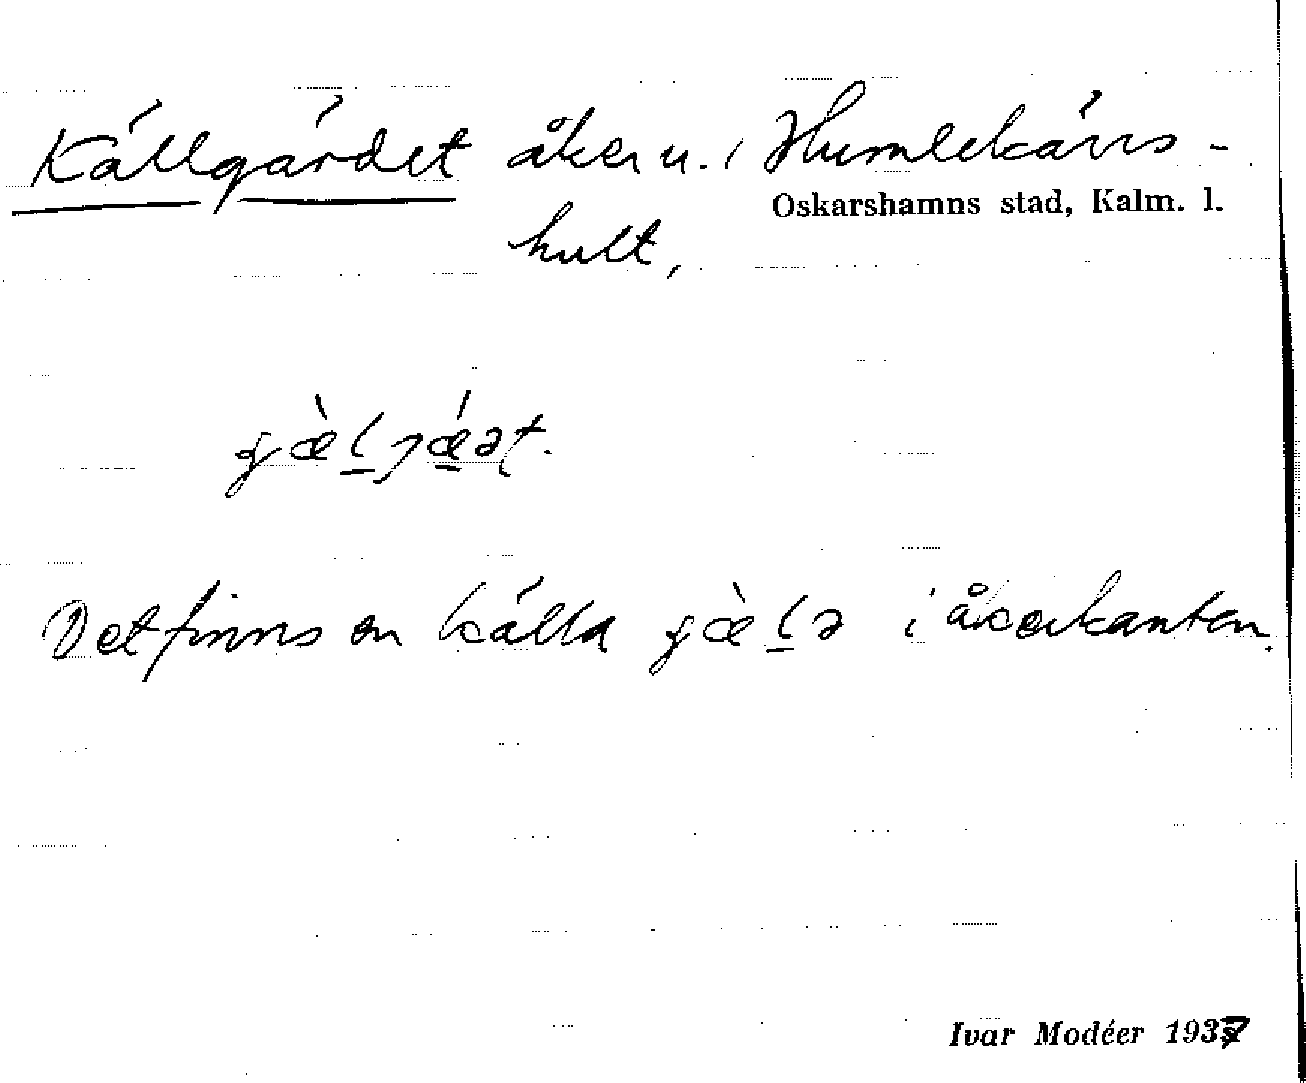 Källgärdet åker u. Humlekärrs-
Oskarshamns stad, Kalm. l.
hult,
Det finns en källa i åkerkanten.
Ivar Modéer 1937